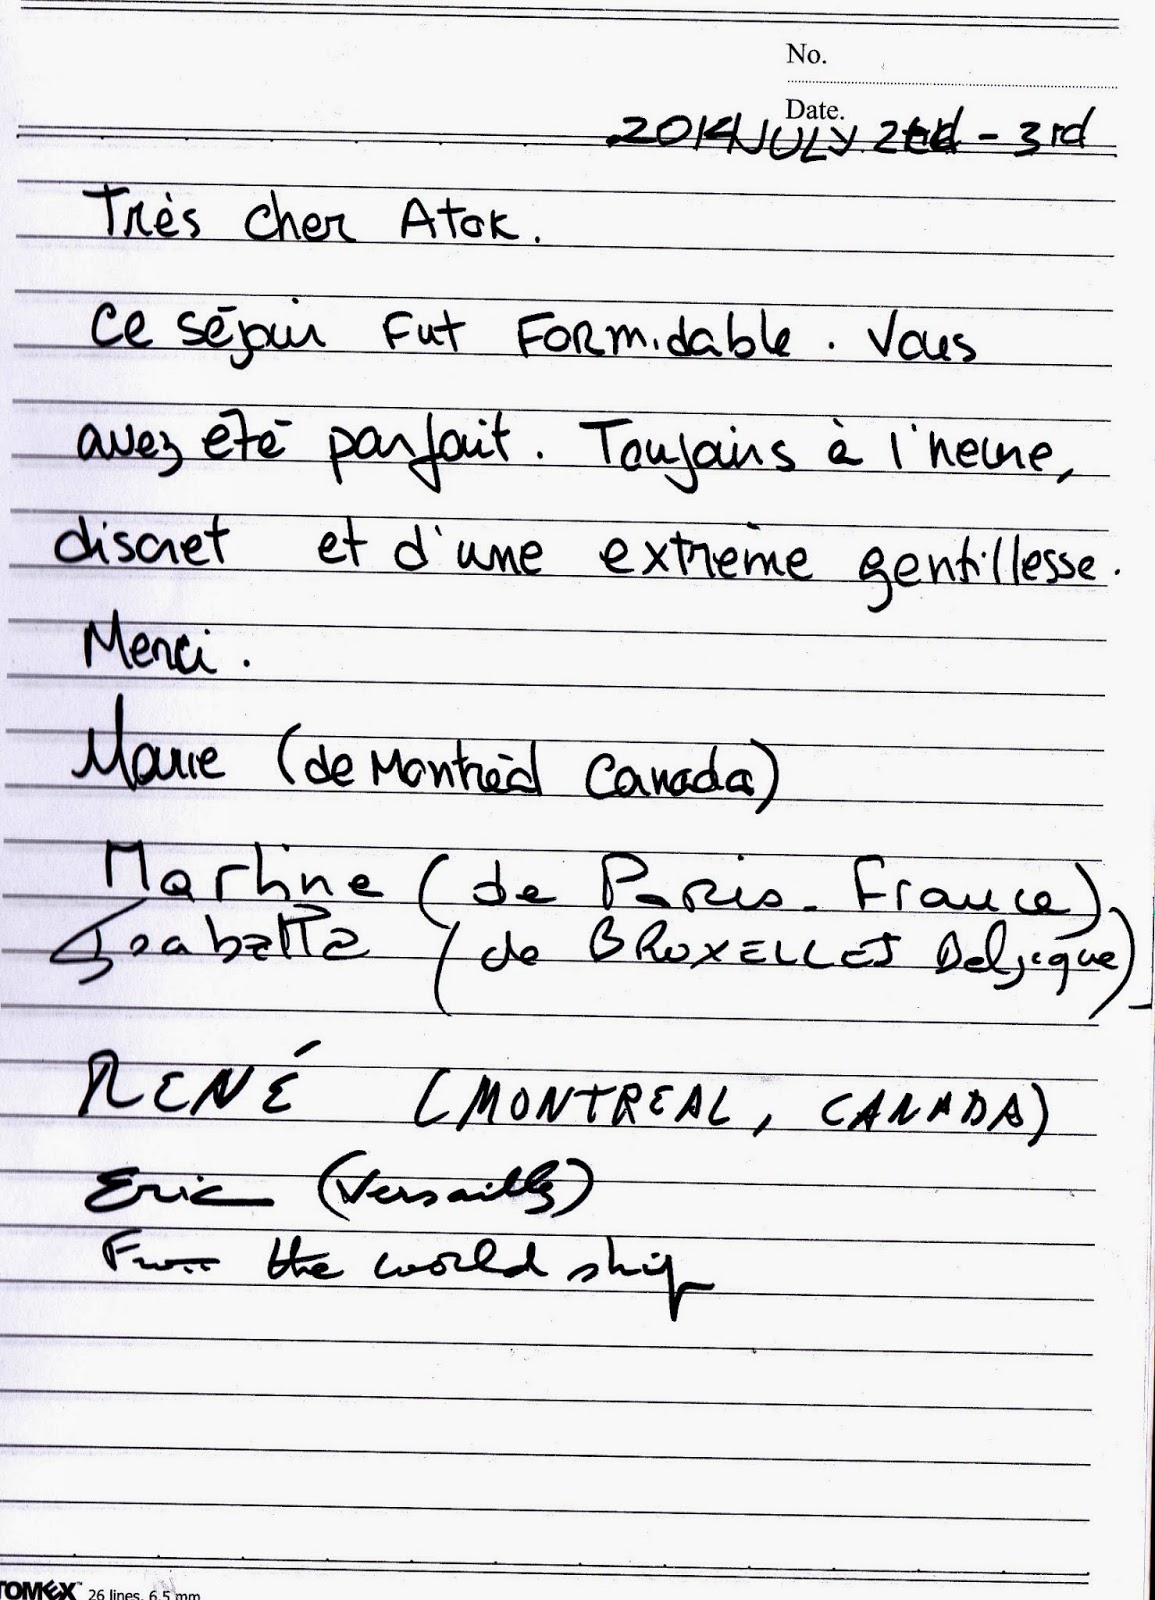 No.
Date.
2014 JULY 2nd - 3rd
Très cher Atok.
Ce séjour fut formidable. Vous
avez été parfait. Toujours à l'heure,
discret et d'une extrême gentillesse.
Merci.
Marie (de Montréal Canada)
Martine (de Paris - France)
Isabelle (de BRUXELLES Belgique)
RENÉ (MONTREAL, CANADA)
Eric (Versailles)
From the world ship
TOMEX 26 lines. 6.5 mm